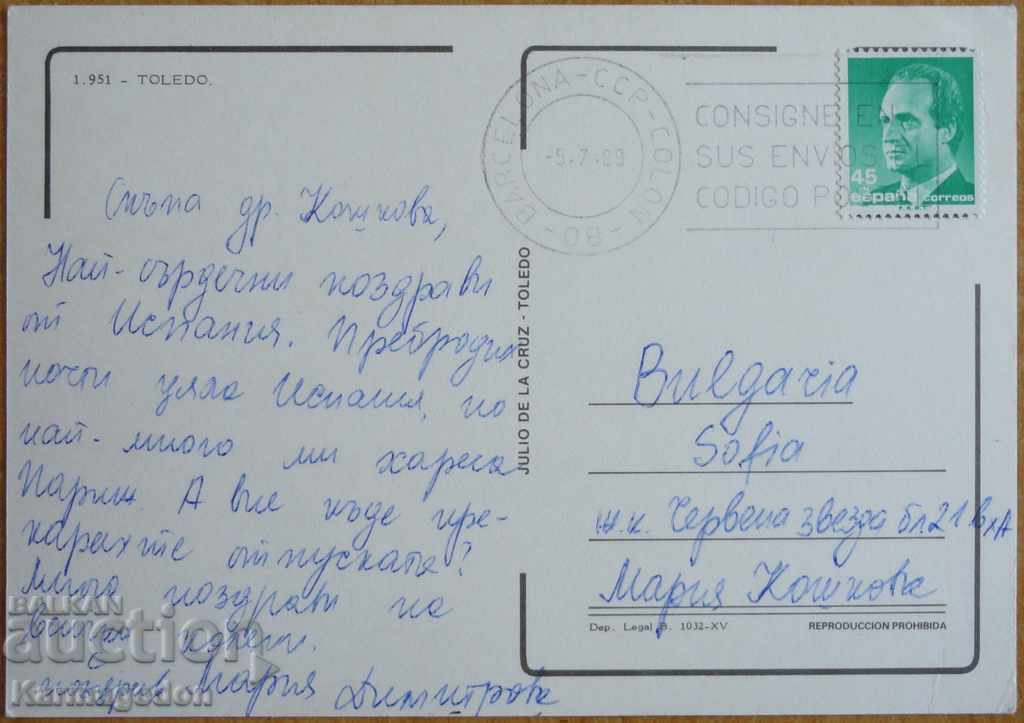 1.951 – TOLEDO.
Скъпа др. Кошкова,
Най-сърдечни поздрави
от Испания. Пребродих
почти цяла Испания, но
най-много ми хареса
Париж. А вие къде пре-
карахте отпуската?
Много поздрави на
колеги.
Мария Димитрова
JULIO DE LA CRUZ - TOLEDO
BARCELONA-CCP-COLON
-5.7.89
-08-
CONSIGNE EN
SUS ENVIOS
CODIGO PO
45
españa correos
F.N.M.T.
Bulgaria
Sofia
ж.к. Червена звезда бл.21 вхА
Мария Кошкова
Dep. Legal B. 1032-XV
REPRODUCCION PROHIBIDA
BALKAN
auction
Karmagedon